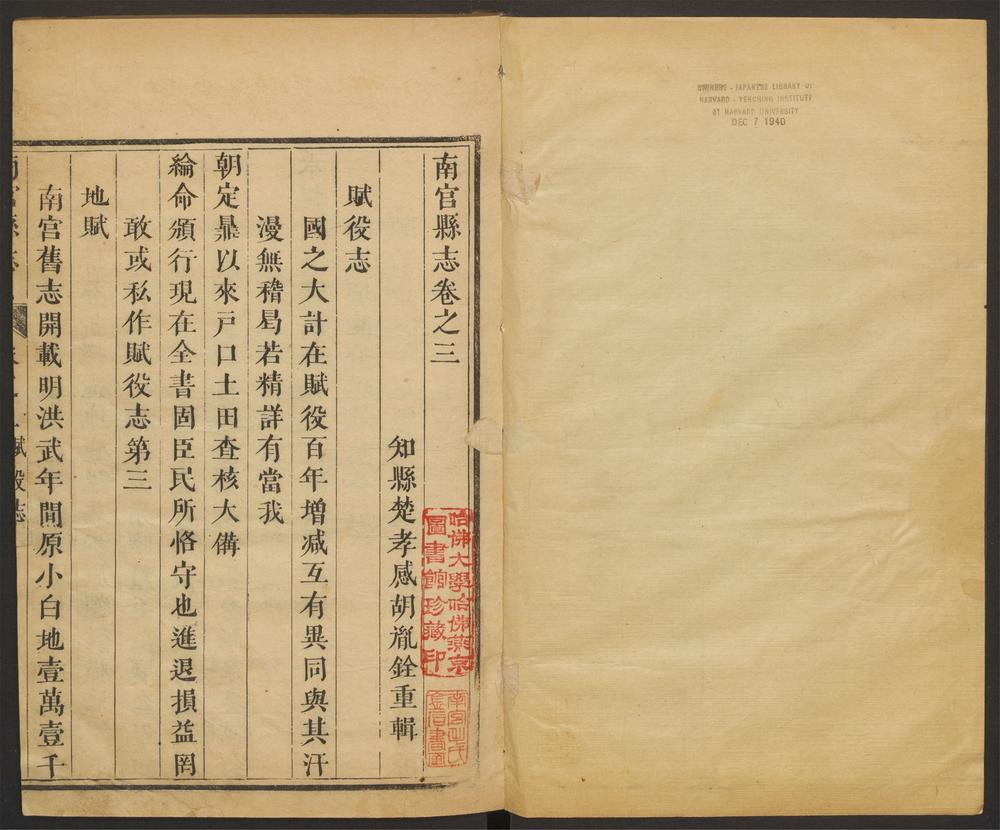 CHINESE - JAPANESE LIBRARY OF
HARVARD - YENCHING INSTITUTE
AT HARVARD UNIVERSITY
DEC 7 1940
南宫縣志卷之三
知縣楚孝感胡胤銓重輯
賦役志
國之大計在賦役百年增减互有異同與其汗
漫無稽曷若精詳有當我
朝定鼎以來戸口土田查核大備
綸命頒行現在全書固臣民所恪守也進退損益罔
敢或私作賦役志第三
地賦
南宫舊志開載明洪武年間原小白地壹萬壹千
賦役志
哈佛大學哈佛燕京
圖書館珍藏印